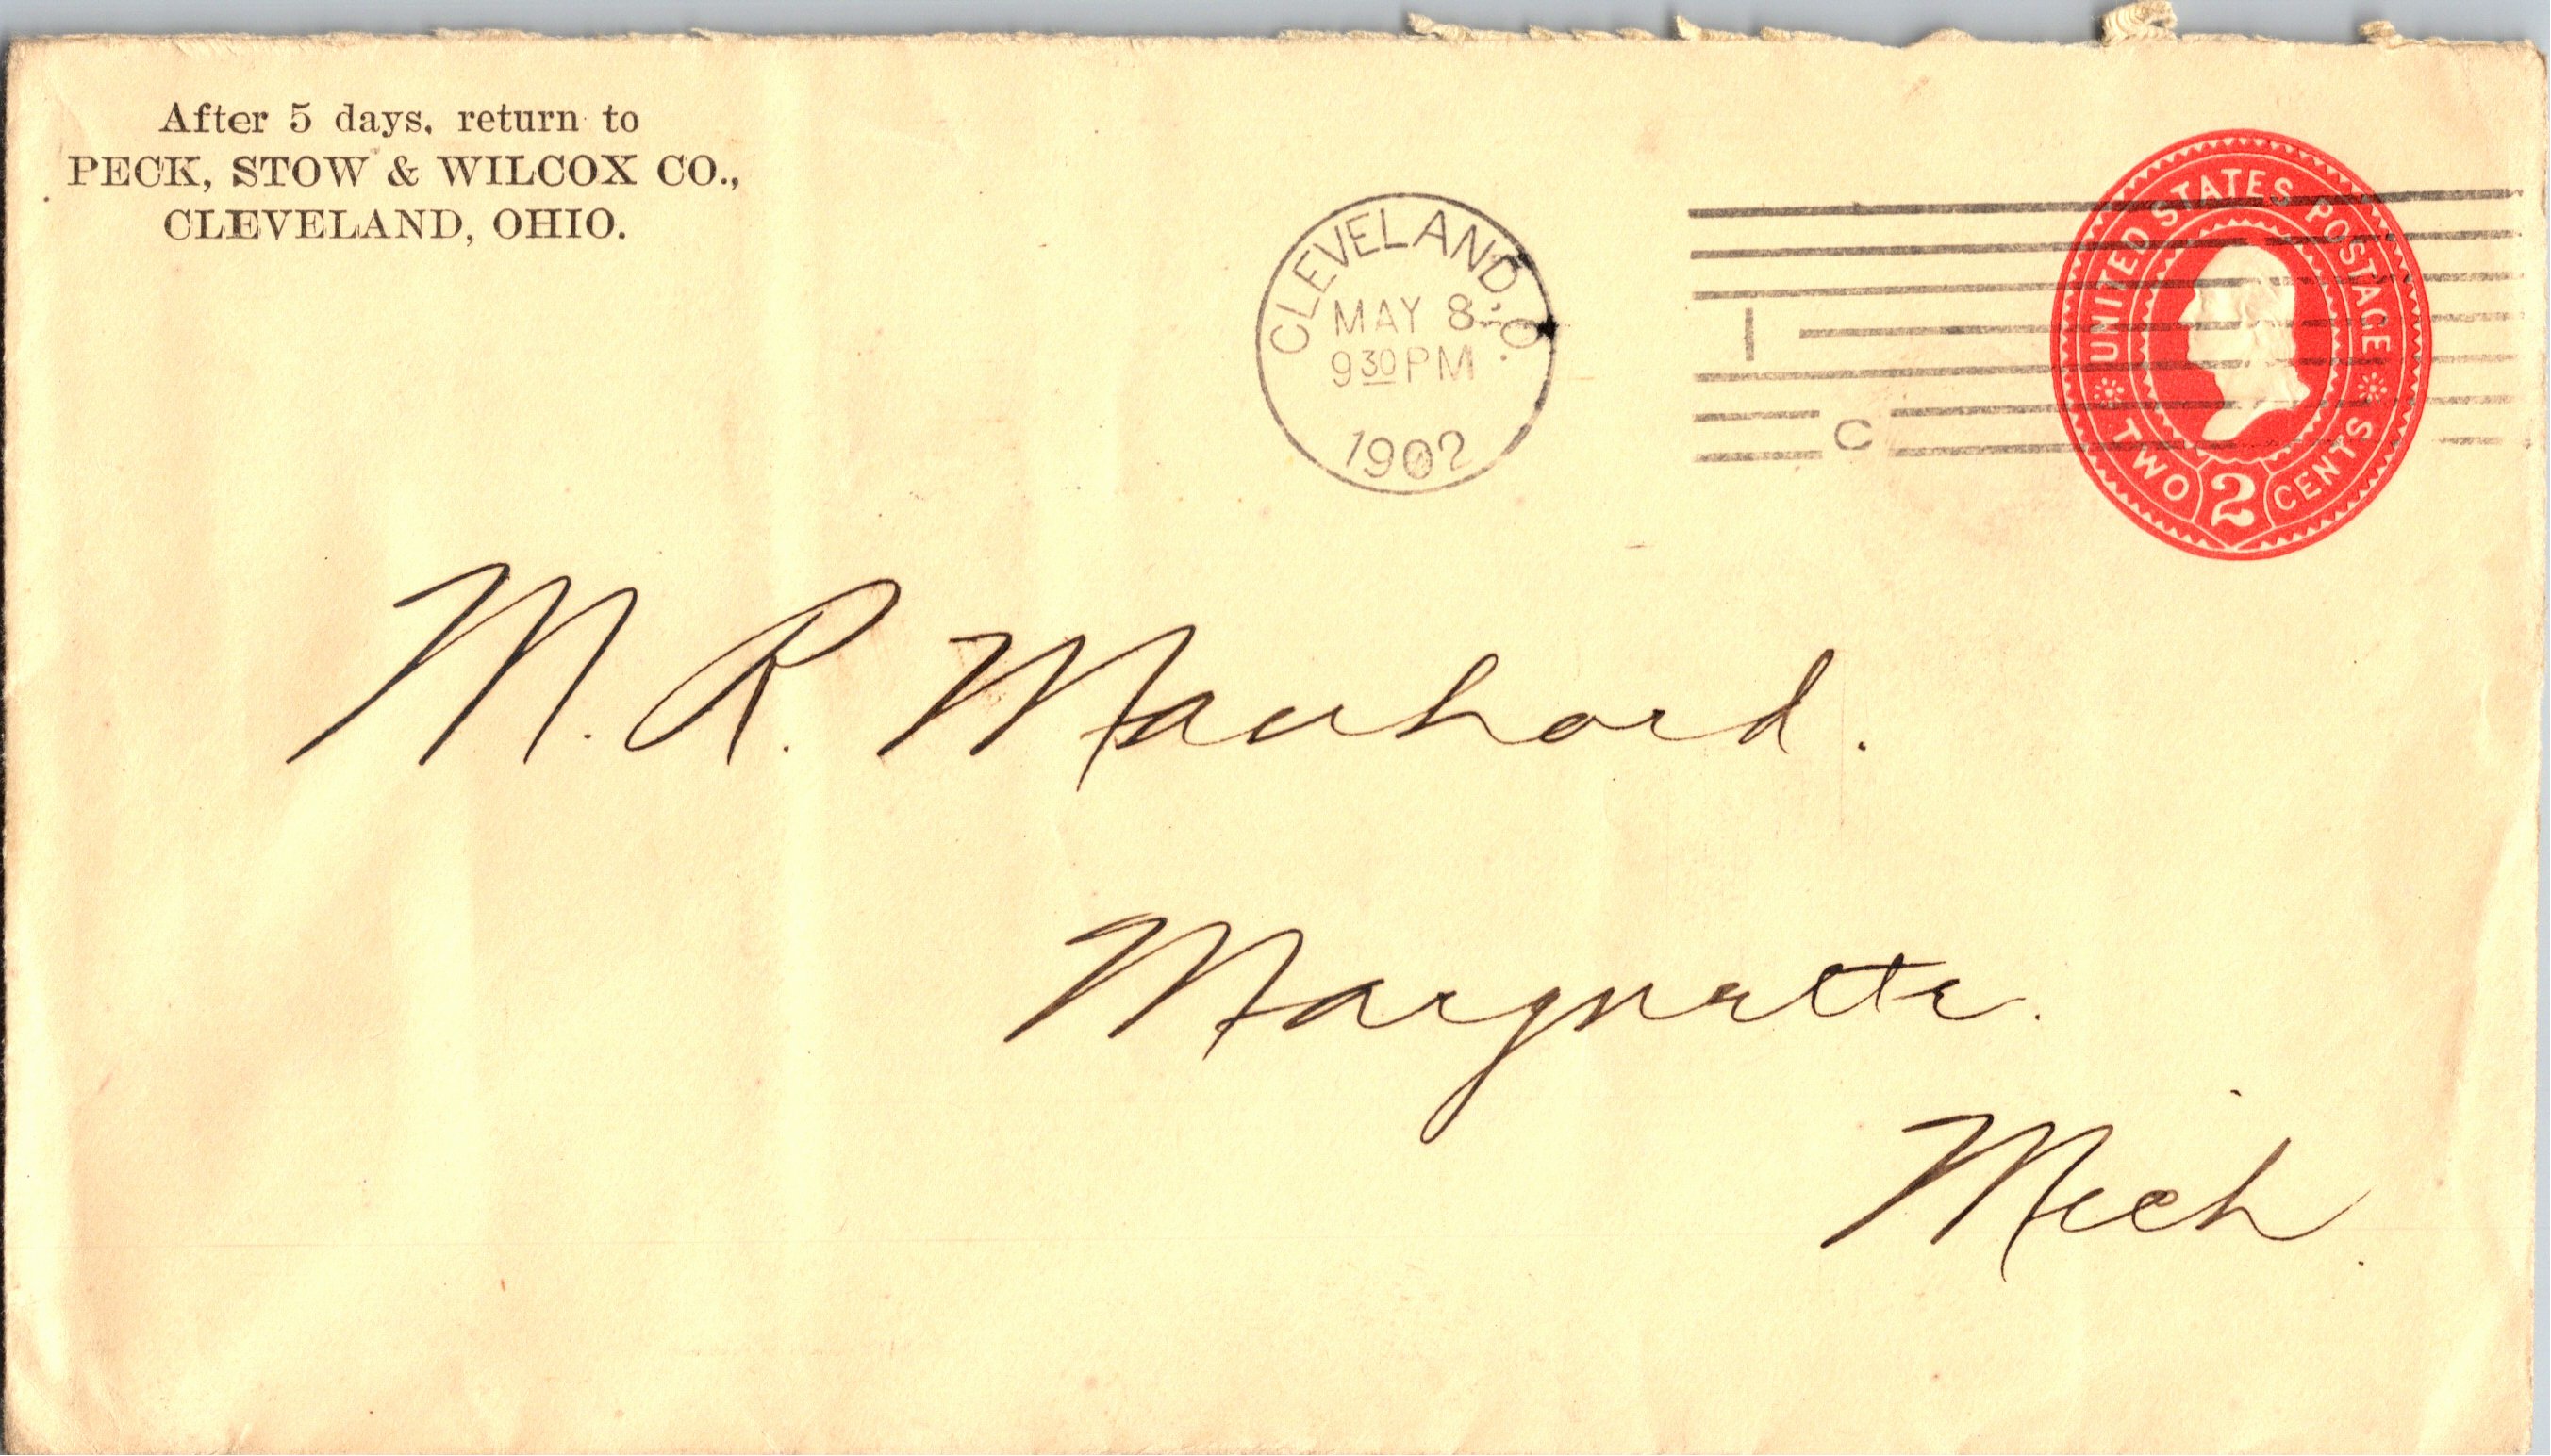 After 5 days, return to
PECK, STOW & WILCOX CO.,
CLEVELAND, OHIO.
CLEVELAND, O.
MAY 8
9 30 PM
1902
1
C
UNITED STATES POSTAGE
TWO 2 CENTS
M. R. Manhard.
Marquette.
Mich.